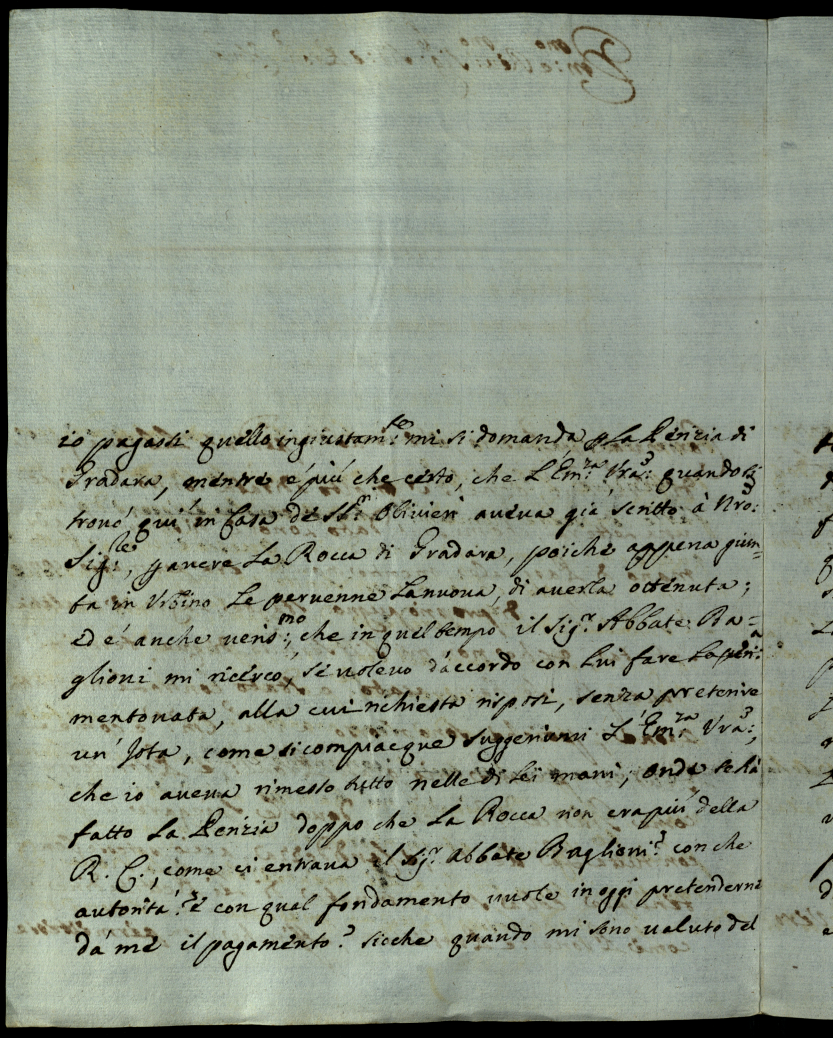 io pagassi quello ingiustam:te mi si domanda p La Perizia di
Gradara, mentre è più che certo, che L'Em:za Vrã: quando si
trovò qui in Casa dè SS:ri Olivieri aveva già scritto à Nrõ:
Sig:le, p avere La Rocca di Gradara, poiche appena giun=
ta in Urbino Le pervenne La nuova, di averla ottenuta;
ed è anche veris:mo, che in quel tempo il Sig:r Abbate Ba=
glioni mi ricercò, se volevo d'accordo con Lui fare La peri:a
mentovata, alla cui richiesta risposi, senza preterire
un' Jota, come si compiacque suggerirmi L'Em:za Vrã:,
che io aveva rimesso tutto nelle di Lei mani; onde se si è
fatto La Perizia doppo che La Rocca non era più della
R. C., come ci entrava il Sig:r Abbate Baglioni? con che
autorità? è con qual fondamento vuole in oggi pretenderne
dà me il pagamento? sicche quando mi sono valuto del